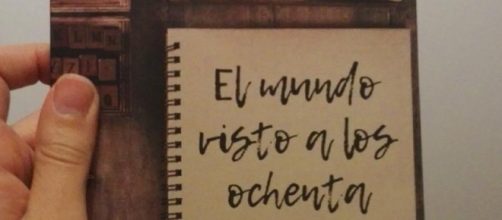 El mundo
visto a los
ochenta